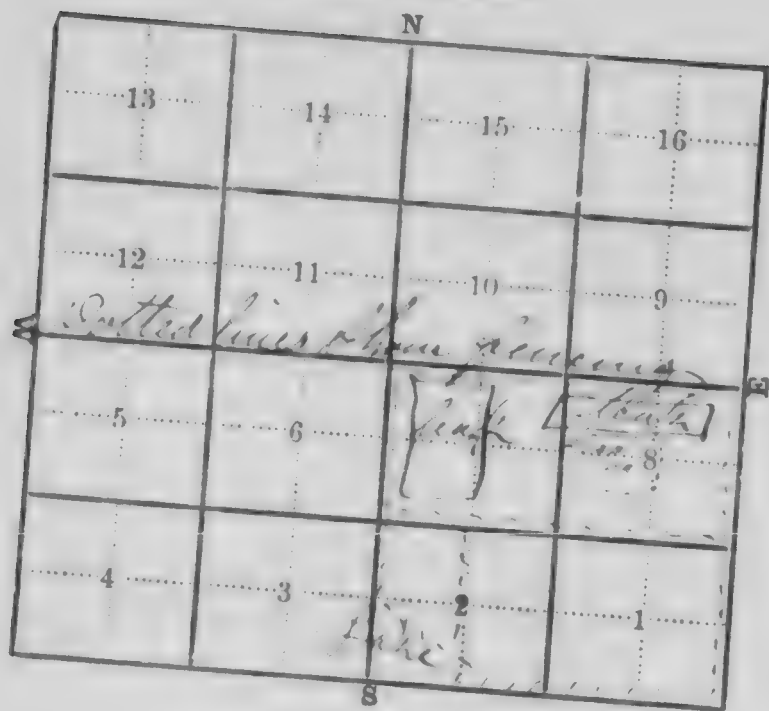 N
13 14 15 16
12 11 10 9
Dotted lines show
W E
5 6 8
4 3 2 1
S